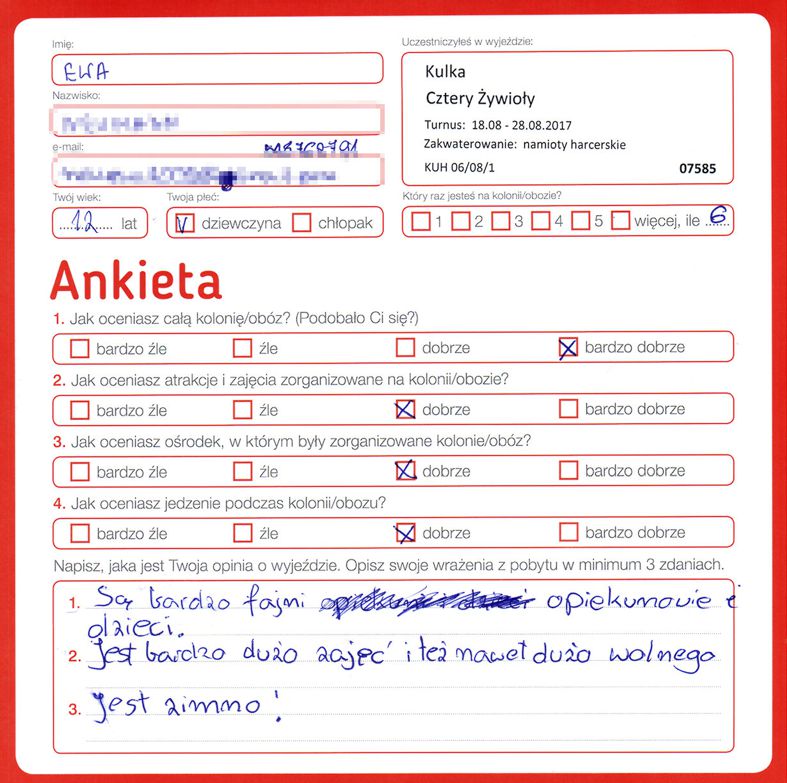 Imię:
EWA
Uczestniczyłeś w wyjeździe:
Kulka
Cztery Żywioły
Turnus: 18.08 - 28.08.2017
Zakwaterowanie: namioty harcerskie
KUH 06/08/1 07585
Nazwisko:
e-mail:
Twój wiek:
12 lat
Twoja płeć:
V dziewczyna chłopak
Który raz jesteś na kolonii/obozie?
1 2 3 4 5 więcej, ile 6
Ankieta
1. Jak oceniasz całą kolonię/obóz? (Podobało Ci się?)
bardzo źle źle dobrze X bardzo dobrze
2. Jak oceniasz atrakcje i zajęcia zorganizowane na kolonii/obozie?
bardzo źle źle X dobrze bardzo dobrze
3. Jak oceniasz ośrodek, w którym były zorganizowane kolonie/obóz?
bardzo źle źle X dobrze bardzo dobrze
4. Jak oceniasz jedzenie podczas kolonii/obozu?
bardzo źle źle X dobrze bardzo dobrze
Napisz, jaka jest Twoja opinia o wyjeździe. Opisz swoje wrażenia z pobytu w minimum 3 zdaniach.
1. Są bardzo fajni opiekunowie i
dzieci.
2. Jest bardzo dużo zajęć i też nawet dużo wolnego
3. Jest zimno!